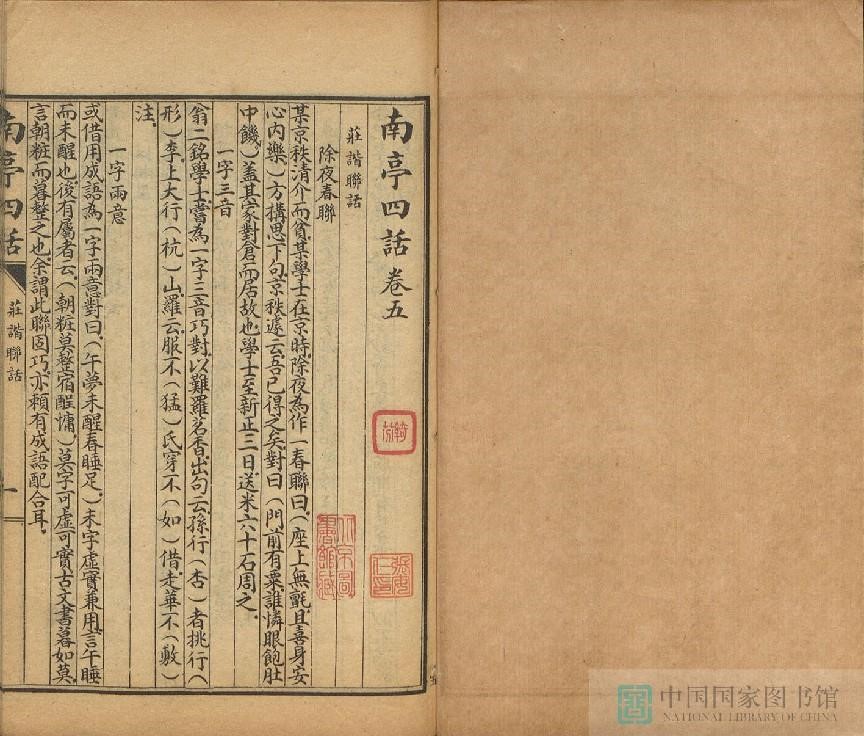 南亭四話卷五
莊諧聯話
除夜春聯
某京秩清介而貧某學士在京時除夜為作一春聯曰（座上無氈且喜身安
心內樂）方構思下句京秩遽云吾已得之矣對曰（門前有粟誰憐眼飽肚
中饑）蓋其家對倉而居故也學士至新正三日送米六十石周之
一字三音
翁二銘學士嘗為一字三音巧對以難羅茗香出句云孫行（杏）者挑行（
形）李上大行（杭）山羅云服不（猛）氏穿不（如）借走華不（敷）
注
一字兩意
或借用成語為一字兩意對曰（午夢未醒春睡足）未字虛實兼用言午睡
而未醒也後有屬者云（朝粧莫整宿酲慵）莫字可虛可實古文書暮如莫
言朝粧而暮整之也余謂此聯固巧亦賴有成語配合耳
南亭四話
莊諧聯話
一
中国国家图书馆
NATIONAL LIBRARY OF CHINA